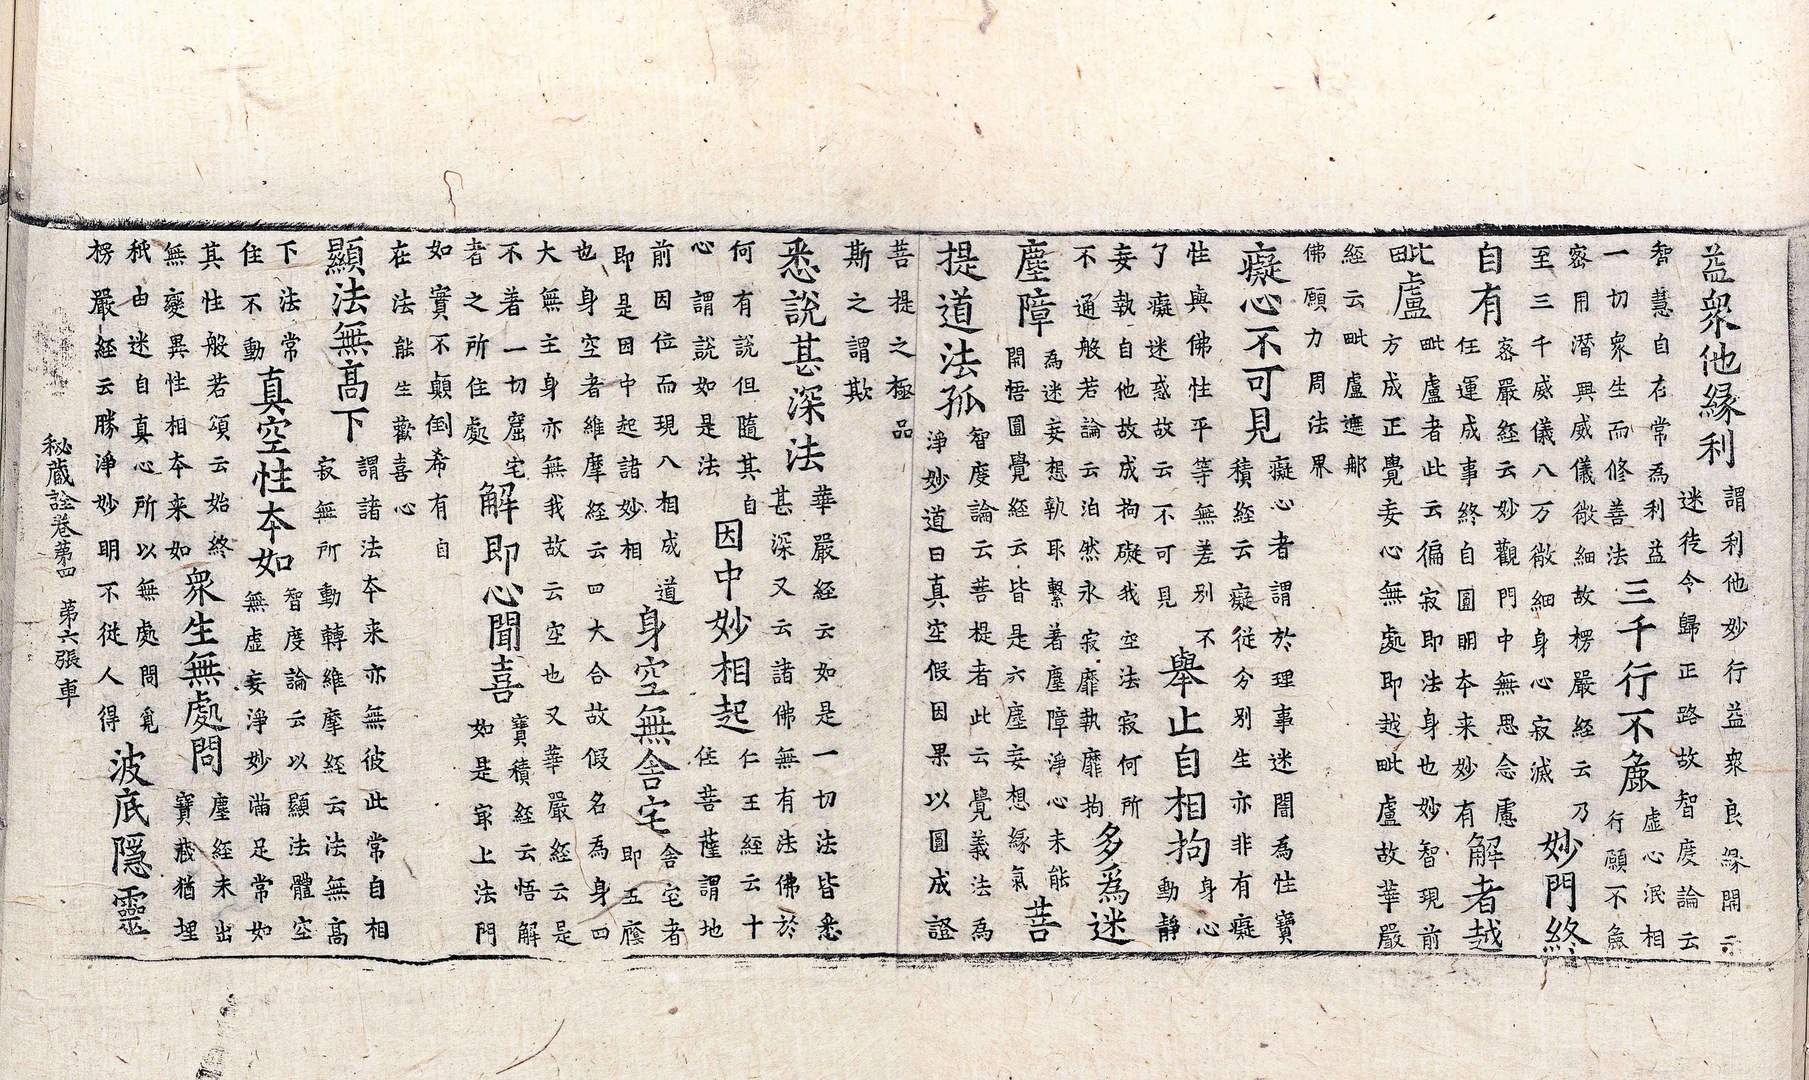 益衆他緣利謂利他妙行益衆良緣開示迷徒令歸正路故智度論云
智慧自在常為利益一切衆生而修善法三千行不麁虛心泯相行願不麁
密用潛興威儀微細故楞嚴經云乃至三千威儀八万微細身心寂滅妙門終
自有密嚴經云妙觀門中無思念慮任運成事終自圓明本来妙有解者越
毗盧毗盧者此云徧寂即法身也妙智現前方成正覺妄心無處即越毗盧故華嚴
經云毗盧遮那佛願力周法界
癡心不可見癡心者謂於理事迷闇為性寶積經云癡從分別生亦非有癡
性與佛性平等無差別不了癡迷惑故云不可見舉止自相拘身心動靜
妄執自他故成拘礙我空法寂何所不通般若論云泊然永寂靡執靡拘多為迷
塵障為迷妄想執取繫著塵障淨心未能開悟圓覺經云皆是六塵妄想緣氣菩
提道法孤智度論云菩提者此云覺義法為淨妙道曰真空假因果以圓成證
菩提之極品斯之謂歟
悉說甚深法華嚴經云如是一切法皆悉甚深又云諸佛無有法佛於
何有說但隨其自心謂說如是法因中妙相起仁王經云十住菩薩謂地
前因位而現八相成道即是因中起諸妙相身空無舍宅舍宅者即五蔭
也身空者維摩經云四大合故假名為身四大無主身亦無我故云空也又華嚴經云是
不著一切窟宅者之所住處解即心聞喜寶積經云悟解如是最上法門
如實不顛倒希有自在法能生歡喜心
顯法無高下謂諸法本来亦無彼此常自相寂無所動轉維摩經云法無高
下法常住不動真空性本如智度論云以顯法體空無虛妄淨妙滿足常如
其性般若頌云始終無變異性相本来如衆生無處問塵經未出寶藏猶埋
秖由迷自真心所以無處問覓楞嚴經云勝淨妙明不從人得波底隱靈
秘藏詮卷第四 第六張 車